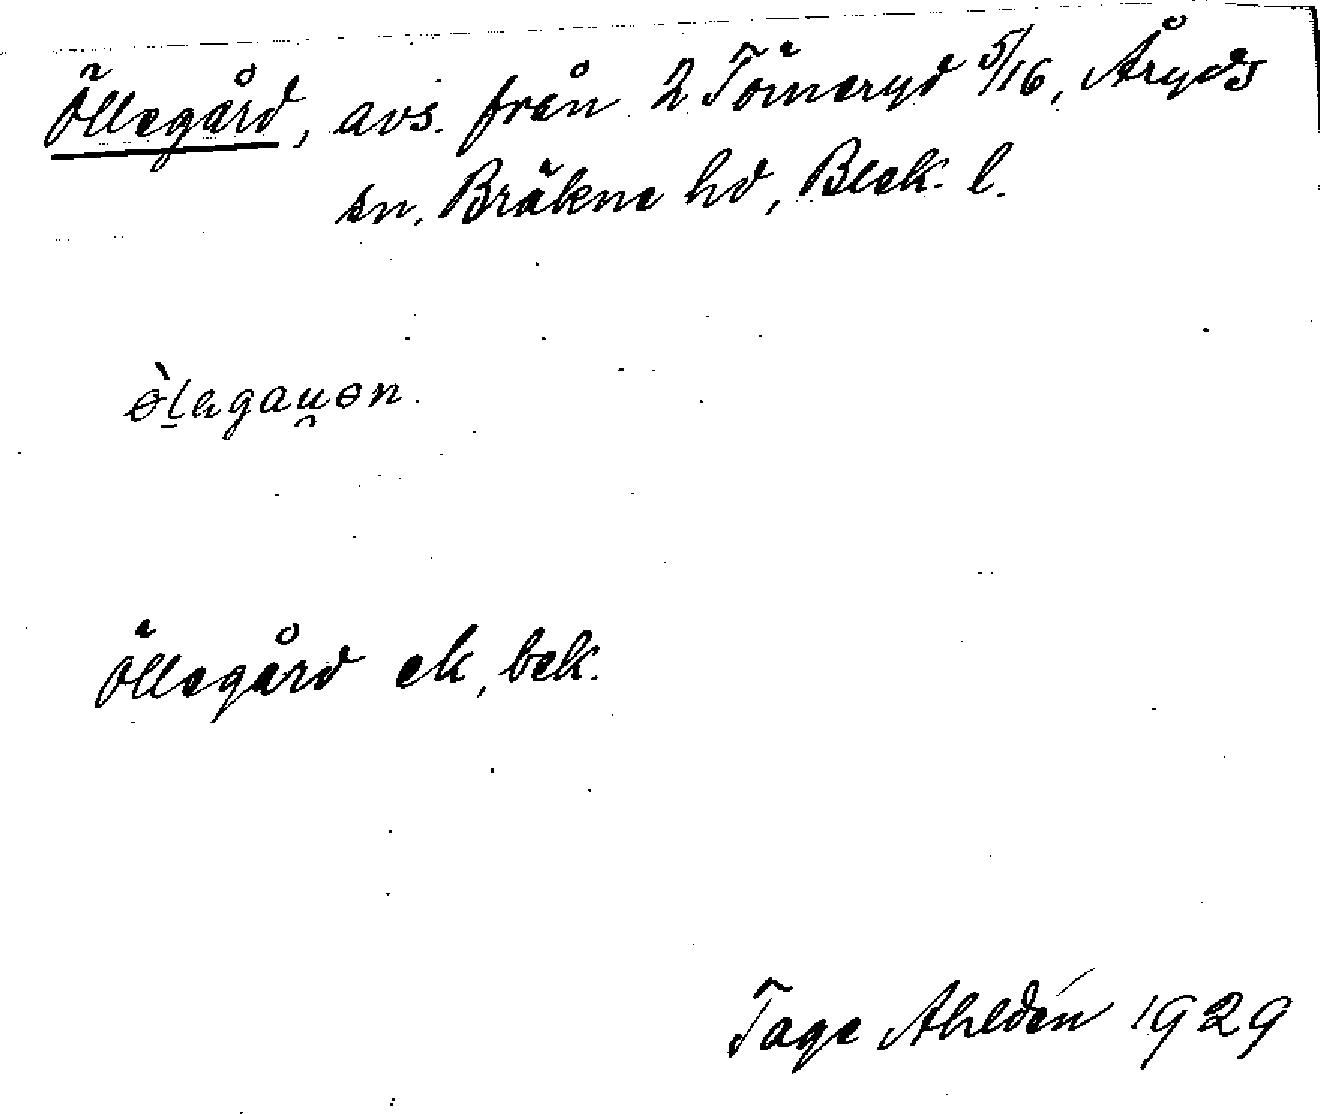 Öllegård, avs. från 2 Tömeryd 5/16, Åryds
sn, Bräkne hd, Blek. l.
ɵ̀l̠agau̯ɵn.
Öllegård ek, bek.
Tage Ahldén 1929